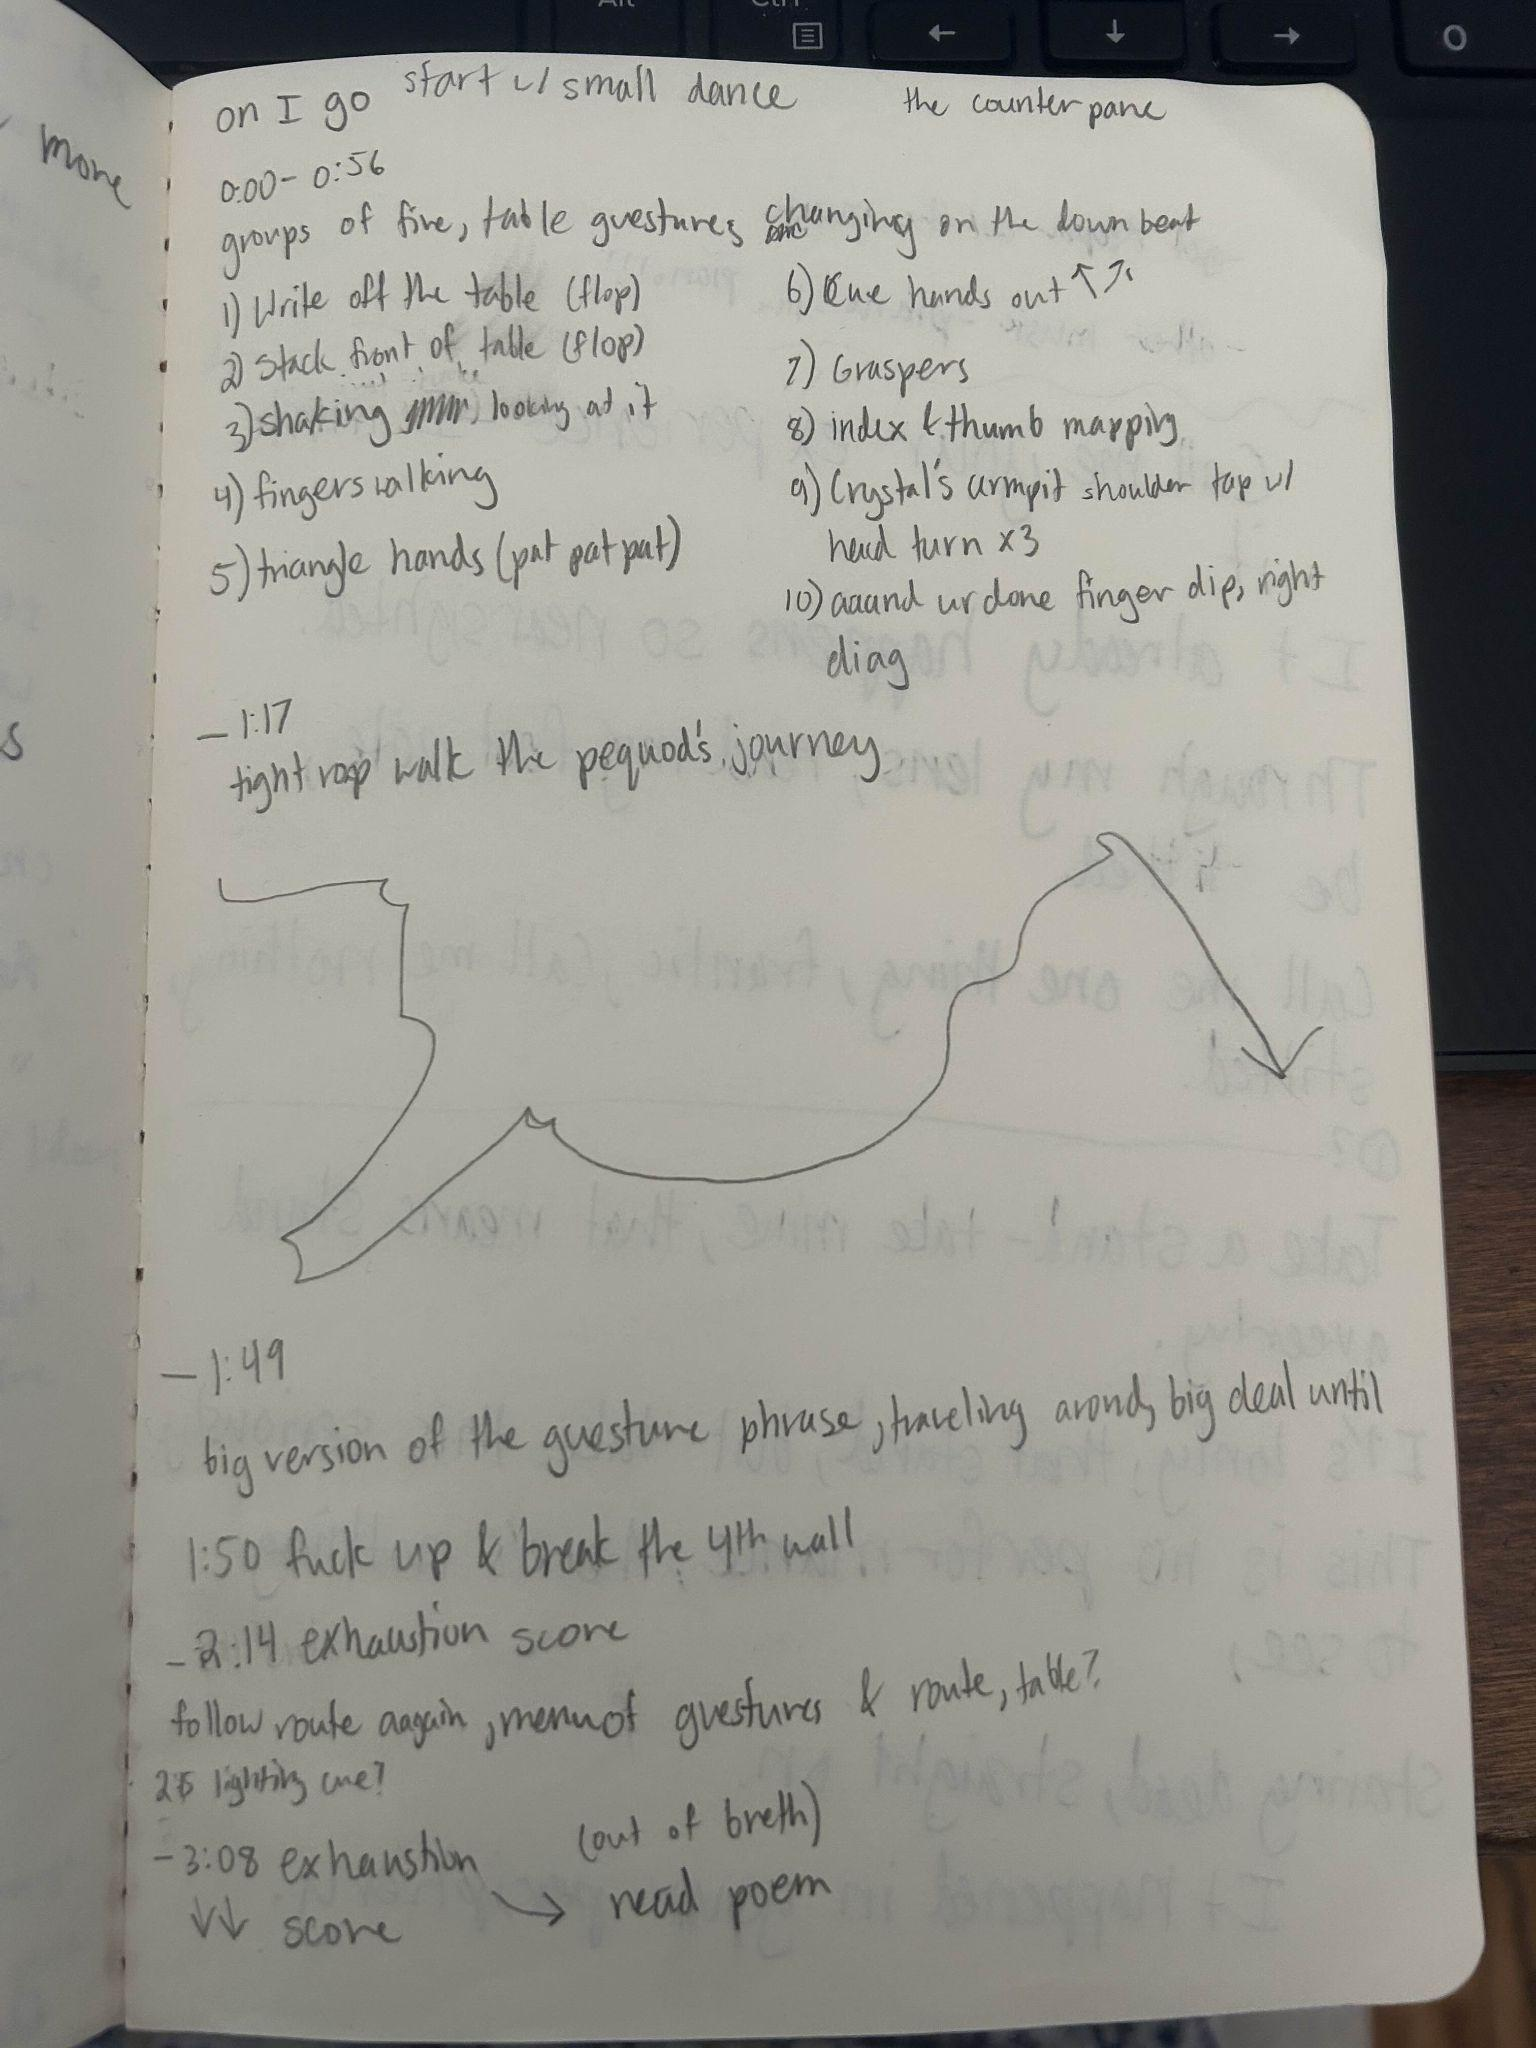 more
s
on I go start w/ small dance the counterpane
0:00- 0:56
groups of five, table guestures changing on the down beat
1) Write off the table (flop)
2) Stack front of table (flop)
3) shaking looking at it
4) fingers walking
5) triangle hands (pat pat pat)
6) Cue hands out ↑↗
7) Graspers
8) index & thumb mapping
9) Crystal's armpit shoulder tap w/
head turn x3
10) aaand ur done finger dip, right
diag
- 1:17
tight roap walk the pequod's journey
- 1:49
big version of the guesture phrase, traveling around, big deal until
1:50 fuck up & break the 4th wall
- 2:14 exhaustion score
follow route aagain, menu of guestures & route, table?
lighting cue?
- 3:08 exhaustion → (out of breth)
↓↓ score read poem
Alt
Ctrl
← ↓ → 0